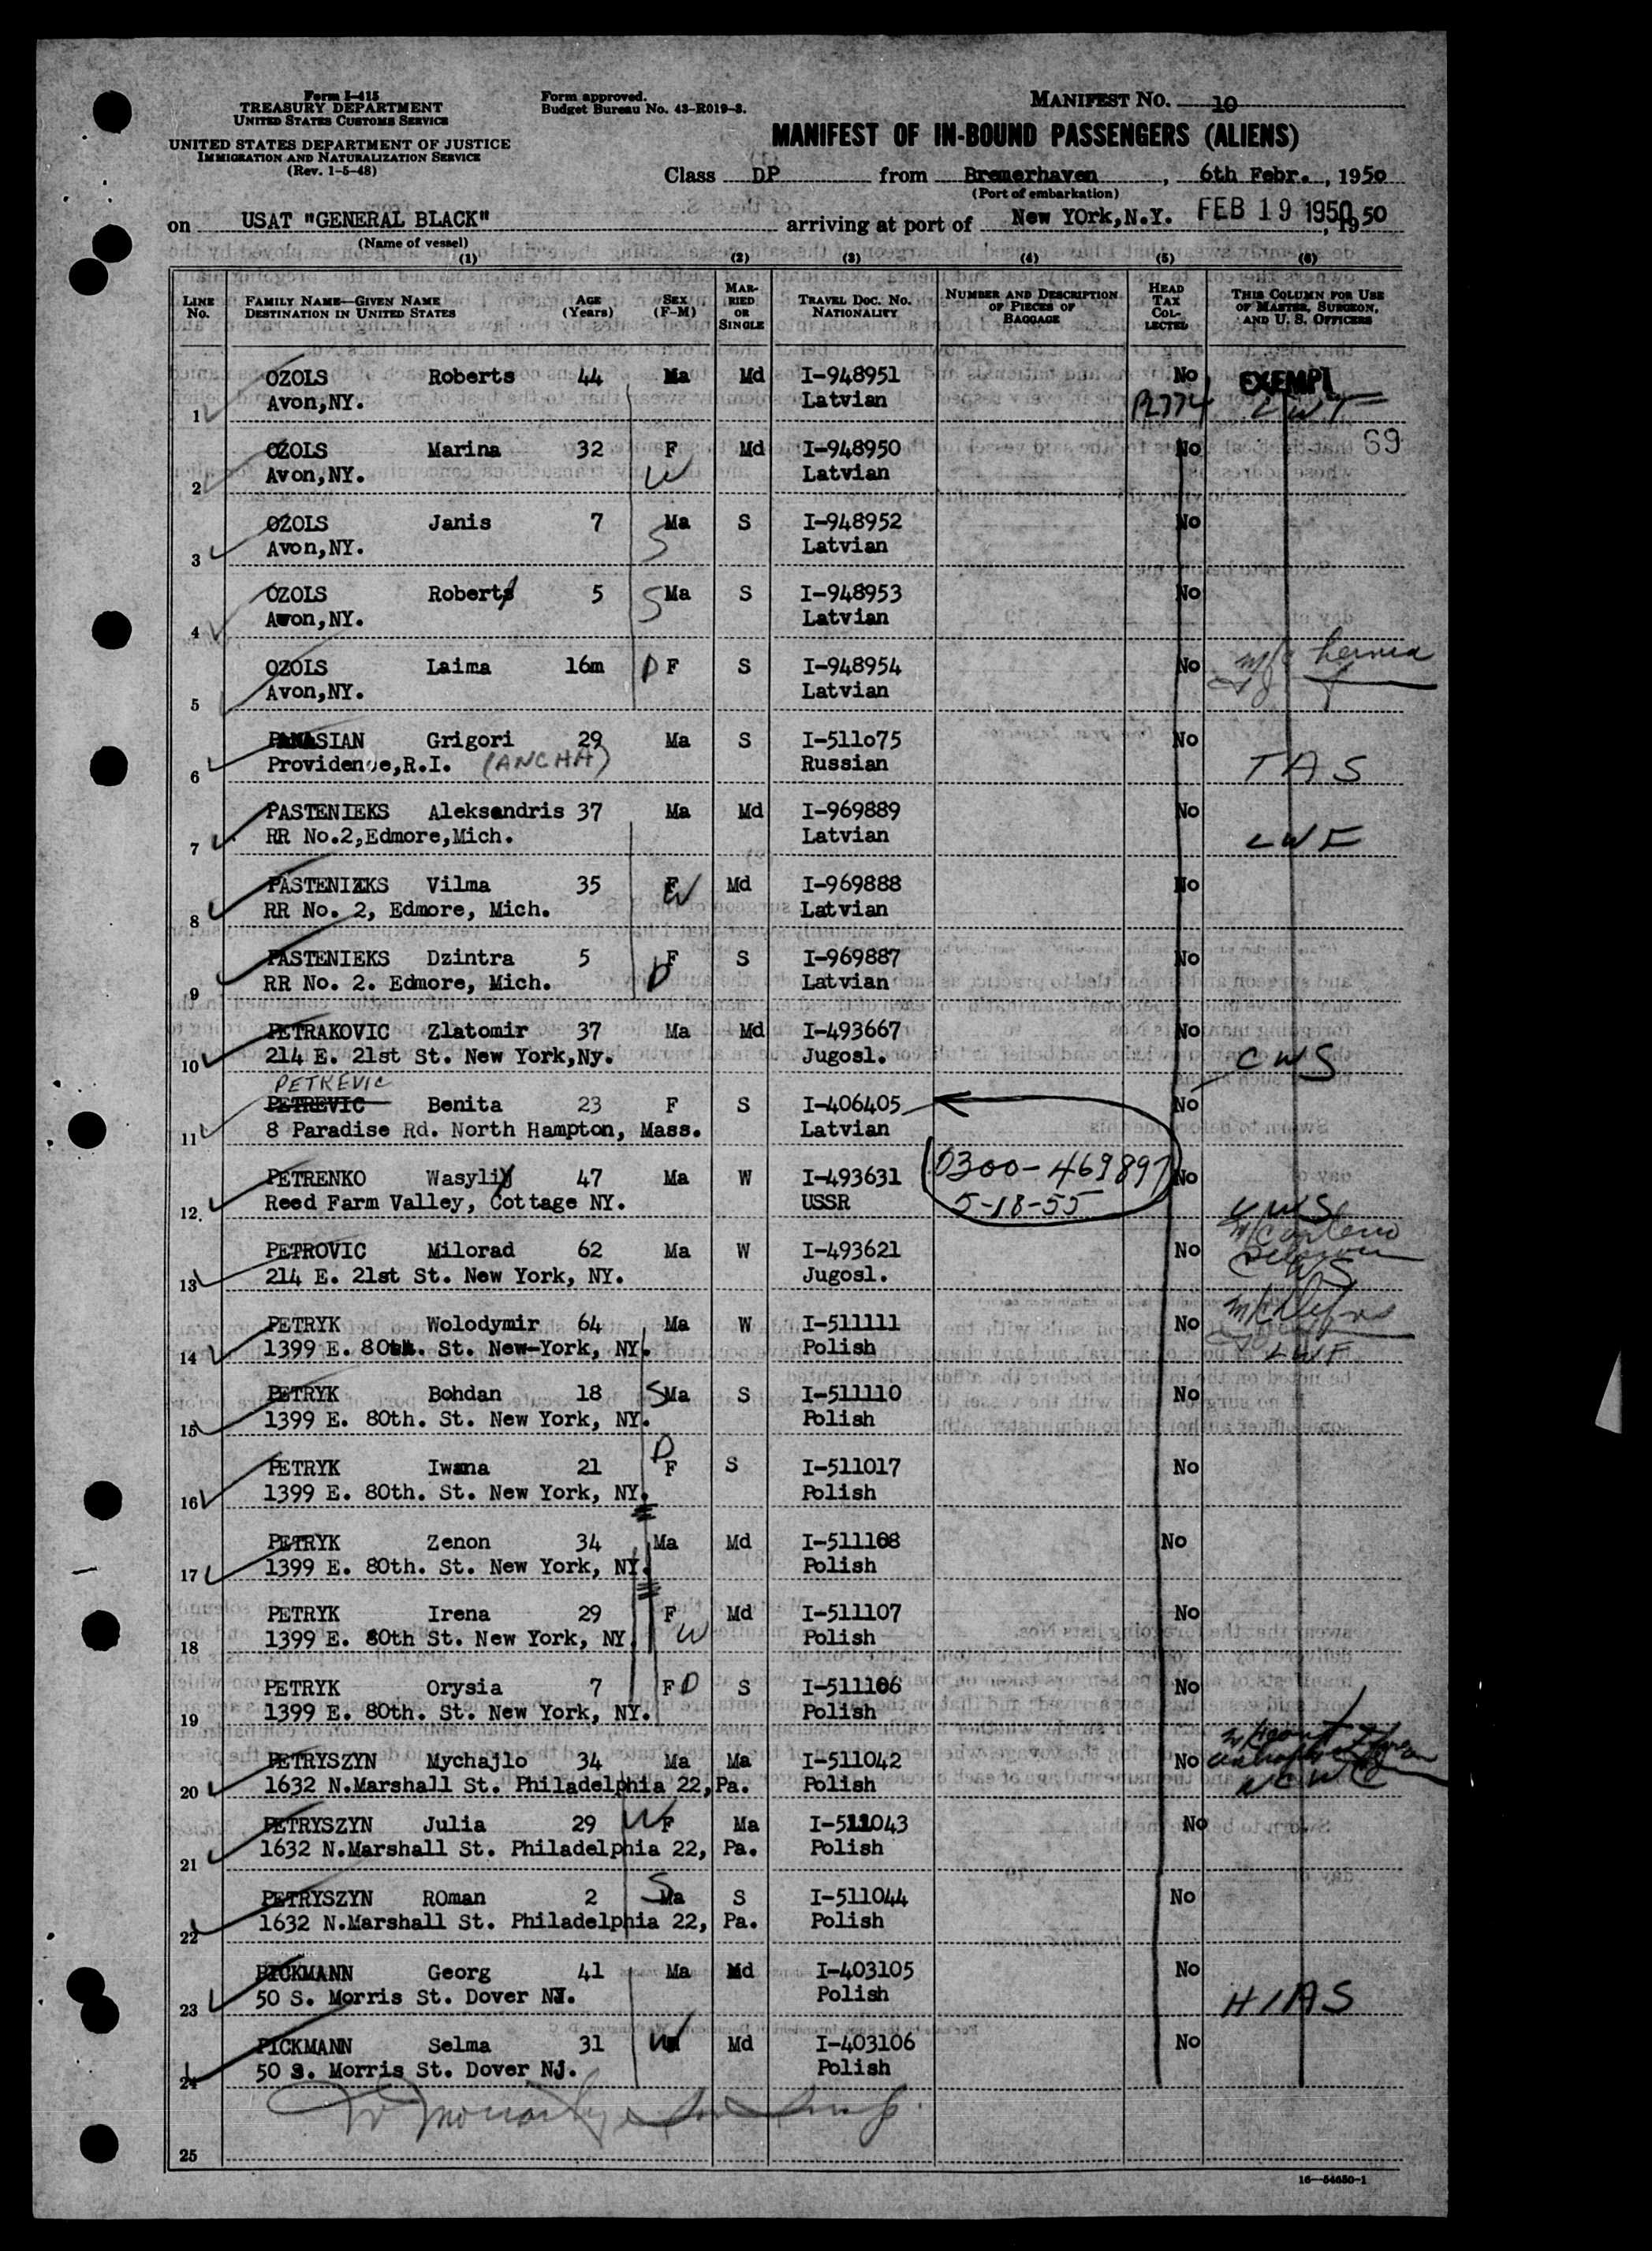 Form I-415
TREASURY DEPARTMENT
UNITED STATES CUSTOMS SERVICE
UNITED STATES DEPARTMENT OF JUSTICE
IMMIGRATION AND NATURALIZATION SERVICE
(Rev. 1-5-48)
Form approved.
Budget Bureau No. 43-R019-3.
MANIFEST NO. 10
MANIFEST OF IN-BOUND PASSENGERS (ALIENS)
Class DP from Bremerhaven, 6th Febr., 1950
(Port of embarkation)
on USAT "GENERAL BLACK" arriving at port of New YOrk,N.Y. FEB 19 1950, 1950
(Name of vessel)
(1) (2) (3) (4) (5) (6)
LINE NO. FAMILY NAME—GIVEN NAME DESTINATION IN UNITED STATES AGE (Years) SEX (F-M) MARRIED OR SINGLE TRAVEL DOC. NO. NATIONALITY NUMBER AND DESCRIPTION OF PIECES OF BAGGAGE HEAD TAX COLLECTED THIS COLUMN FOR USE OF MASTER, SURGEON, AND U. S. OFFICERS
OZOLS Roberts 44 Ma Md I-948951 No EXEMPT
1 Avon,NY. Latvian
OZOLS Marina 32 F Md I-948950 No 69
2 Avon,NY. W Latvian
OZOLS Janis 7 Ma S I-948952 No
3 Avon,NY. S Latvian
OZOLS Roberts 5 S Ma S I-948953 No
4 Avon,NY. Latvian
OZOLS Laima 16m D F S I-948954 No hernia
5 Avon,NY. Latvian
PANASIAN Grigori 29 Ma S I-511o75 No
6 Providence,R.I. (ANCHA) Russian TAS
PASTENIEKS Aleksandris 37 Ma Md I-969889 No
7 RR No.2,Edmore,Mich. Latvian LWF
PASTENIEKS Vilma 35 F W Md I-969888 No
8 RR No. 2, Edmore, Mich. Latvian
PASTENIEKS Dzintra 5 F S I-969887 No
9 RR No. 2. Edmore, Mich. D Latvian
PETRAKOVIC Zlatomir 37 Ma Md I-493667 No
10 214 E. 21st St. New York,Ny. Jugosl. CWS
PETKEVIC
PETREVIC Benita 23 F S I-406405 No
11 8 Paradise Rd. North Hampton, Mass. Latvian
PETRENKO Wasylij 47 Ma W I-493631 0300-469897 No
12 Reed Farm Valley, Cottage NY. USSR 5-18-55 CWS
PETROVIC Milorad 62 Ma W I-493621 No
13 214 E. 21st St. New York, NY. Jugosl. CWS
PETRYK Wolodymir 64 Ma W I-511111 No
14 1399 E. 80th. St. New-York, NY. Polish LWF
PETRYK Bohdan 18 S Ma S I-511110 No
15 1399 E. 80th. St. New York, NY. Polish
PETRYK Iwana 21 D F S I-511017 No
16 1399 E. 80th. St. New York, NY. Polish
PETRYK Zenon 34 Ma Md I-511108 No
17 1399 E. 80th. St. New York, NY. Polish
PETRYK Irena 29 F Md I-511107 No
18 1399 E. 80th St. New York, NY. W Polish
PETRYK Orysia 7 F D S I-511106 No
19 1399 E. 80th. St. New York, NY. Polish
PETRYSZYN Mychajlo 34 Ma Ma I-511042 No
20 1632 N.Marshall St. Philadelphia 22,Pa. Polish NCWC
PETRYSZYN Julia 29 W F Ma I-511043 No
21 1632 N.Marshall St. Philadelphia 22, Pa. Polish
PETRYSZYN ROman 2 S Ma S I-511044 No
22 1632 N.Marshall St. Philadelphia 22, Pa. Polish
PICKMANN Georg 41 Ma Md I-403105 No
23 50 S. Morris St. Dover NJ. Polish HIAS
PICKMANN Selma 31 W Md I-403106 No
24 50 S. Morris St. Dover NJ. Polish
25
16—54650-1